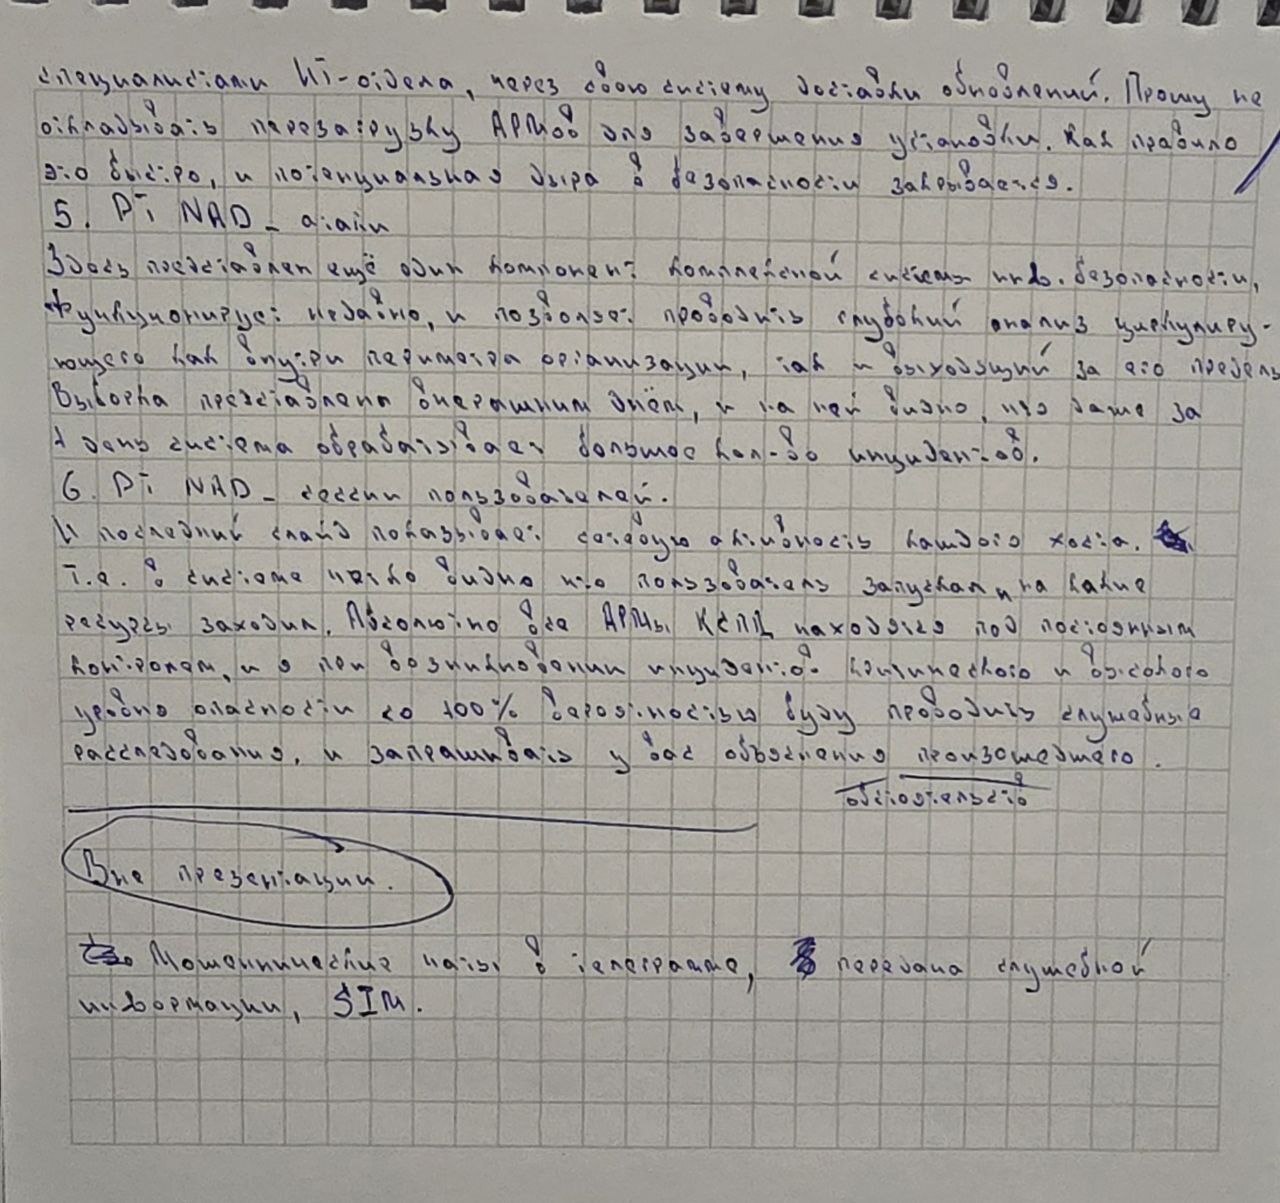 специалистами ИТ-отдела, через свою систему доставки обновлений. Прошу не
откладывать перезагрузку АРМов для завершения установки. Как правило
это быстро, и потенциальная дыра в безопасности закрывается.
5. PT NAD - атаки
Здесь представлен ещё один компонент комплексной системы инф. безопасности,
Функционирует недавно, и позволяет проводить глубокий анализ циркулиру-
ющего как внутри периметра организации, так и выходящий за его пределы
Выборка представлена вчерашним днём, и на ней видно, что даже за
1 день система обрабатывает большое кол-во инцидентов.
6. PT NAD - сессии пользователей.
И последний слайд показывает сетевую активность каждого хоста.
т.е. в системе чётко видно что пользователь запускал и на какие
ресурсы заходил. Абсолютно все АРМы КСПД находятся под постоянным
контролем, и я при возникновении инцидентов критического и высокого
уровня опасности со 100% вероятностью буду проводить служебные
расследования, и запрашивать у вас объяснения произошедшего.
обстоятельств
Вне презентации.
Мошеннические чаты в телеграмме, передача служебной
информации, SIM.